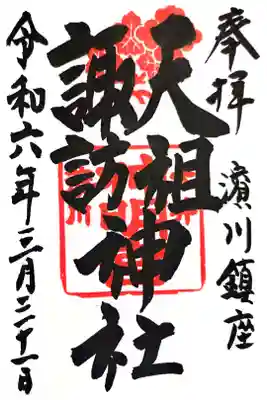 奉拝
濱川鎮座
天祖神社
諏訪
令和六年三月二十一日